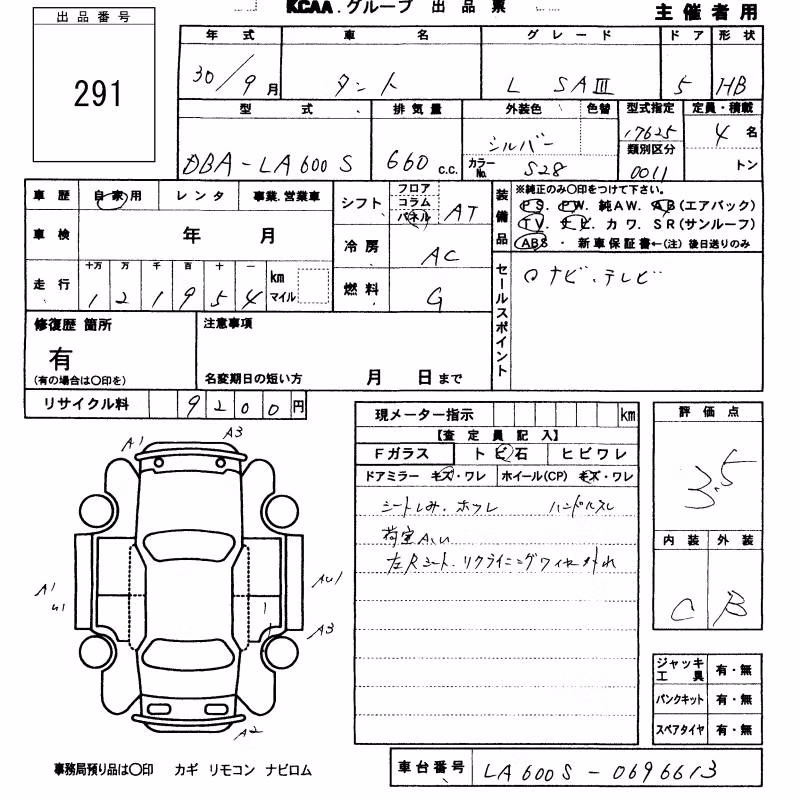 KCAA.グループ 出品票
主催者用
出品番号
291
年式 車名 グレード ドア 形状
30/9月 タント L SAⅢ 5 HB
型式 排気量 外装色 色替 型式指定 定員・積載
DBA-LA600S 660 c.c. シルバー 17625 4名
カラーNo. S28 類別区分 0011 トン
車歴 自家用 レンタ 事業.営業車
車検 年 月
走行 十万 万 千 百 十 一
1 2 1 9 5 4 km マイル
シフト フロア コラム パネル AT
冷房 AC
燃料 G
装備品
※純正のみ○印をつけて下さい。
PS. PW. 純AW. AB(エアバック)
TV. ナビ. カワ. SR(サンルーフ)
ABS ・ 新車保証書←(注) 後日送りのみ
セールスポイント
ロナビ.テレビ
修復歴 箇所
有
(有の場合は○印を)
注意事項
名変期日の短い方 月 日まで
リサイクル料 9200円
現メーター指示 km
【査定員記入】
Fガラス トビ石 ヒビワレ
ドアミラー キズ・ワレ ホイール(CP) キズ・ワレ
シートしみ.ホツレ ハンドルスレ
荷室A,U
左Rシート.リクライニングワイヤー外れ
評価点
3.5
内装 外装
C B
ジャッキ工具 有・無
パンクキット 有・無
スペアタイヤ 有・無
A1
A3
A1
U1
AU1
A3
A2
事務局預り品は○印 カギ リモコン ナビロム
車台番号 LA600S-0696613